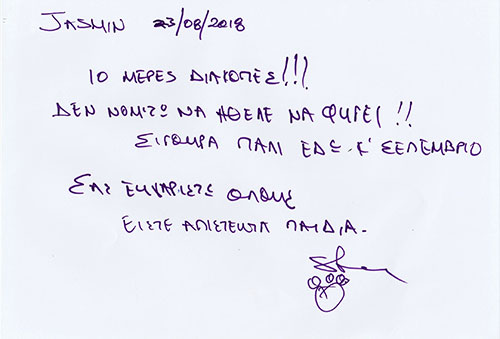 JASMIN 23/08/2018
10 ΜΕΡΕΣ ΔΙΑΚΟΠΕΣ!!!
ΔΕΝ ΝΟΜΙΖΩ ΝΑ ΗΘΕΛΕ ΝΑ ΦΥΓΕΙ !!
ΣΙΓΟΥΡΑ ΠΑΛΙ ΕΔΩ Κ' ΣΕΠΕΜΒΡΙΟ
ΣΑΣ ΕΥΧΑΡΙΣΤΩ ΟΛΟΥΣ
ΕΙΣΤΕ ΑΠΙΣΤΕΥΤΑ ΠΑΙΔΙΑ.